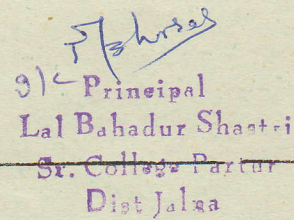 Principal
Lal Bahadur Shastri
Sr. College Partur
Dist Jalna